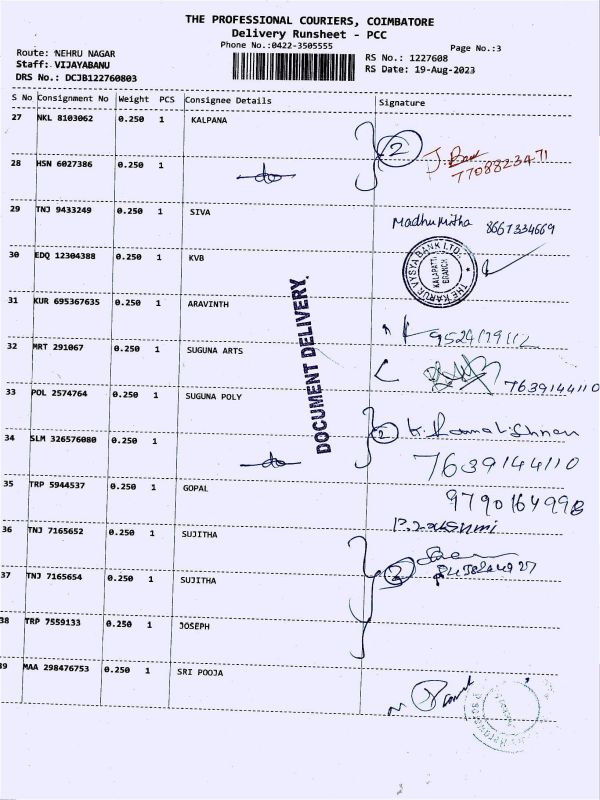 THE PROFESSIONAL COURIERS, COIMBATORE
Delivery Runsheet - PCC
Phone No.:0422-3505555
Page No.:3
Route: NEHRU NAGAR
Staff: VIJAYABANU
DRS No.: DCJB122760803
RS No.: 1227608
RS Date: 19-Aug-2023
S No Consignment No Weight PCS Consignee Details Signature
27 NKL 8103062 0.250 1 KALPANA
2
7708823471
28 HSN 6027386 0.250 1 do
29 TNJ 9433249 0.250 1 SIVA Madhumitha 8667334669
30 EDQ 12304388 0.250 1 KVB
THE KARUR VYSYA BANK LTD.
KALAPATTI
BRANCH
31 KUR 695367635 0.250 1 ARAVINTH
32 MRT 291067 0.250 1 SUGUNA ARTS 7639144110
33 POL 2574764 0.250 1 SUGUNA POLY
DOCUMENT DELIVERY.
2
34 SLM 326576080 0.250 1 do
7639144110
35 TRP 5944537 0.250 1 GOPAL
9790164998
36 TNJ 7165652 0.250 1 SUJITHA
2
37 TNJ 7165654 0.250 1 SUJITHA
38 TRP 7559133 0.250 1 JOSEPH
39 MAA 298476753 0.250 1 SRI POOJA